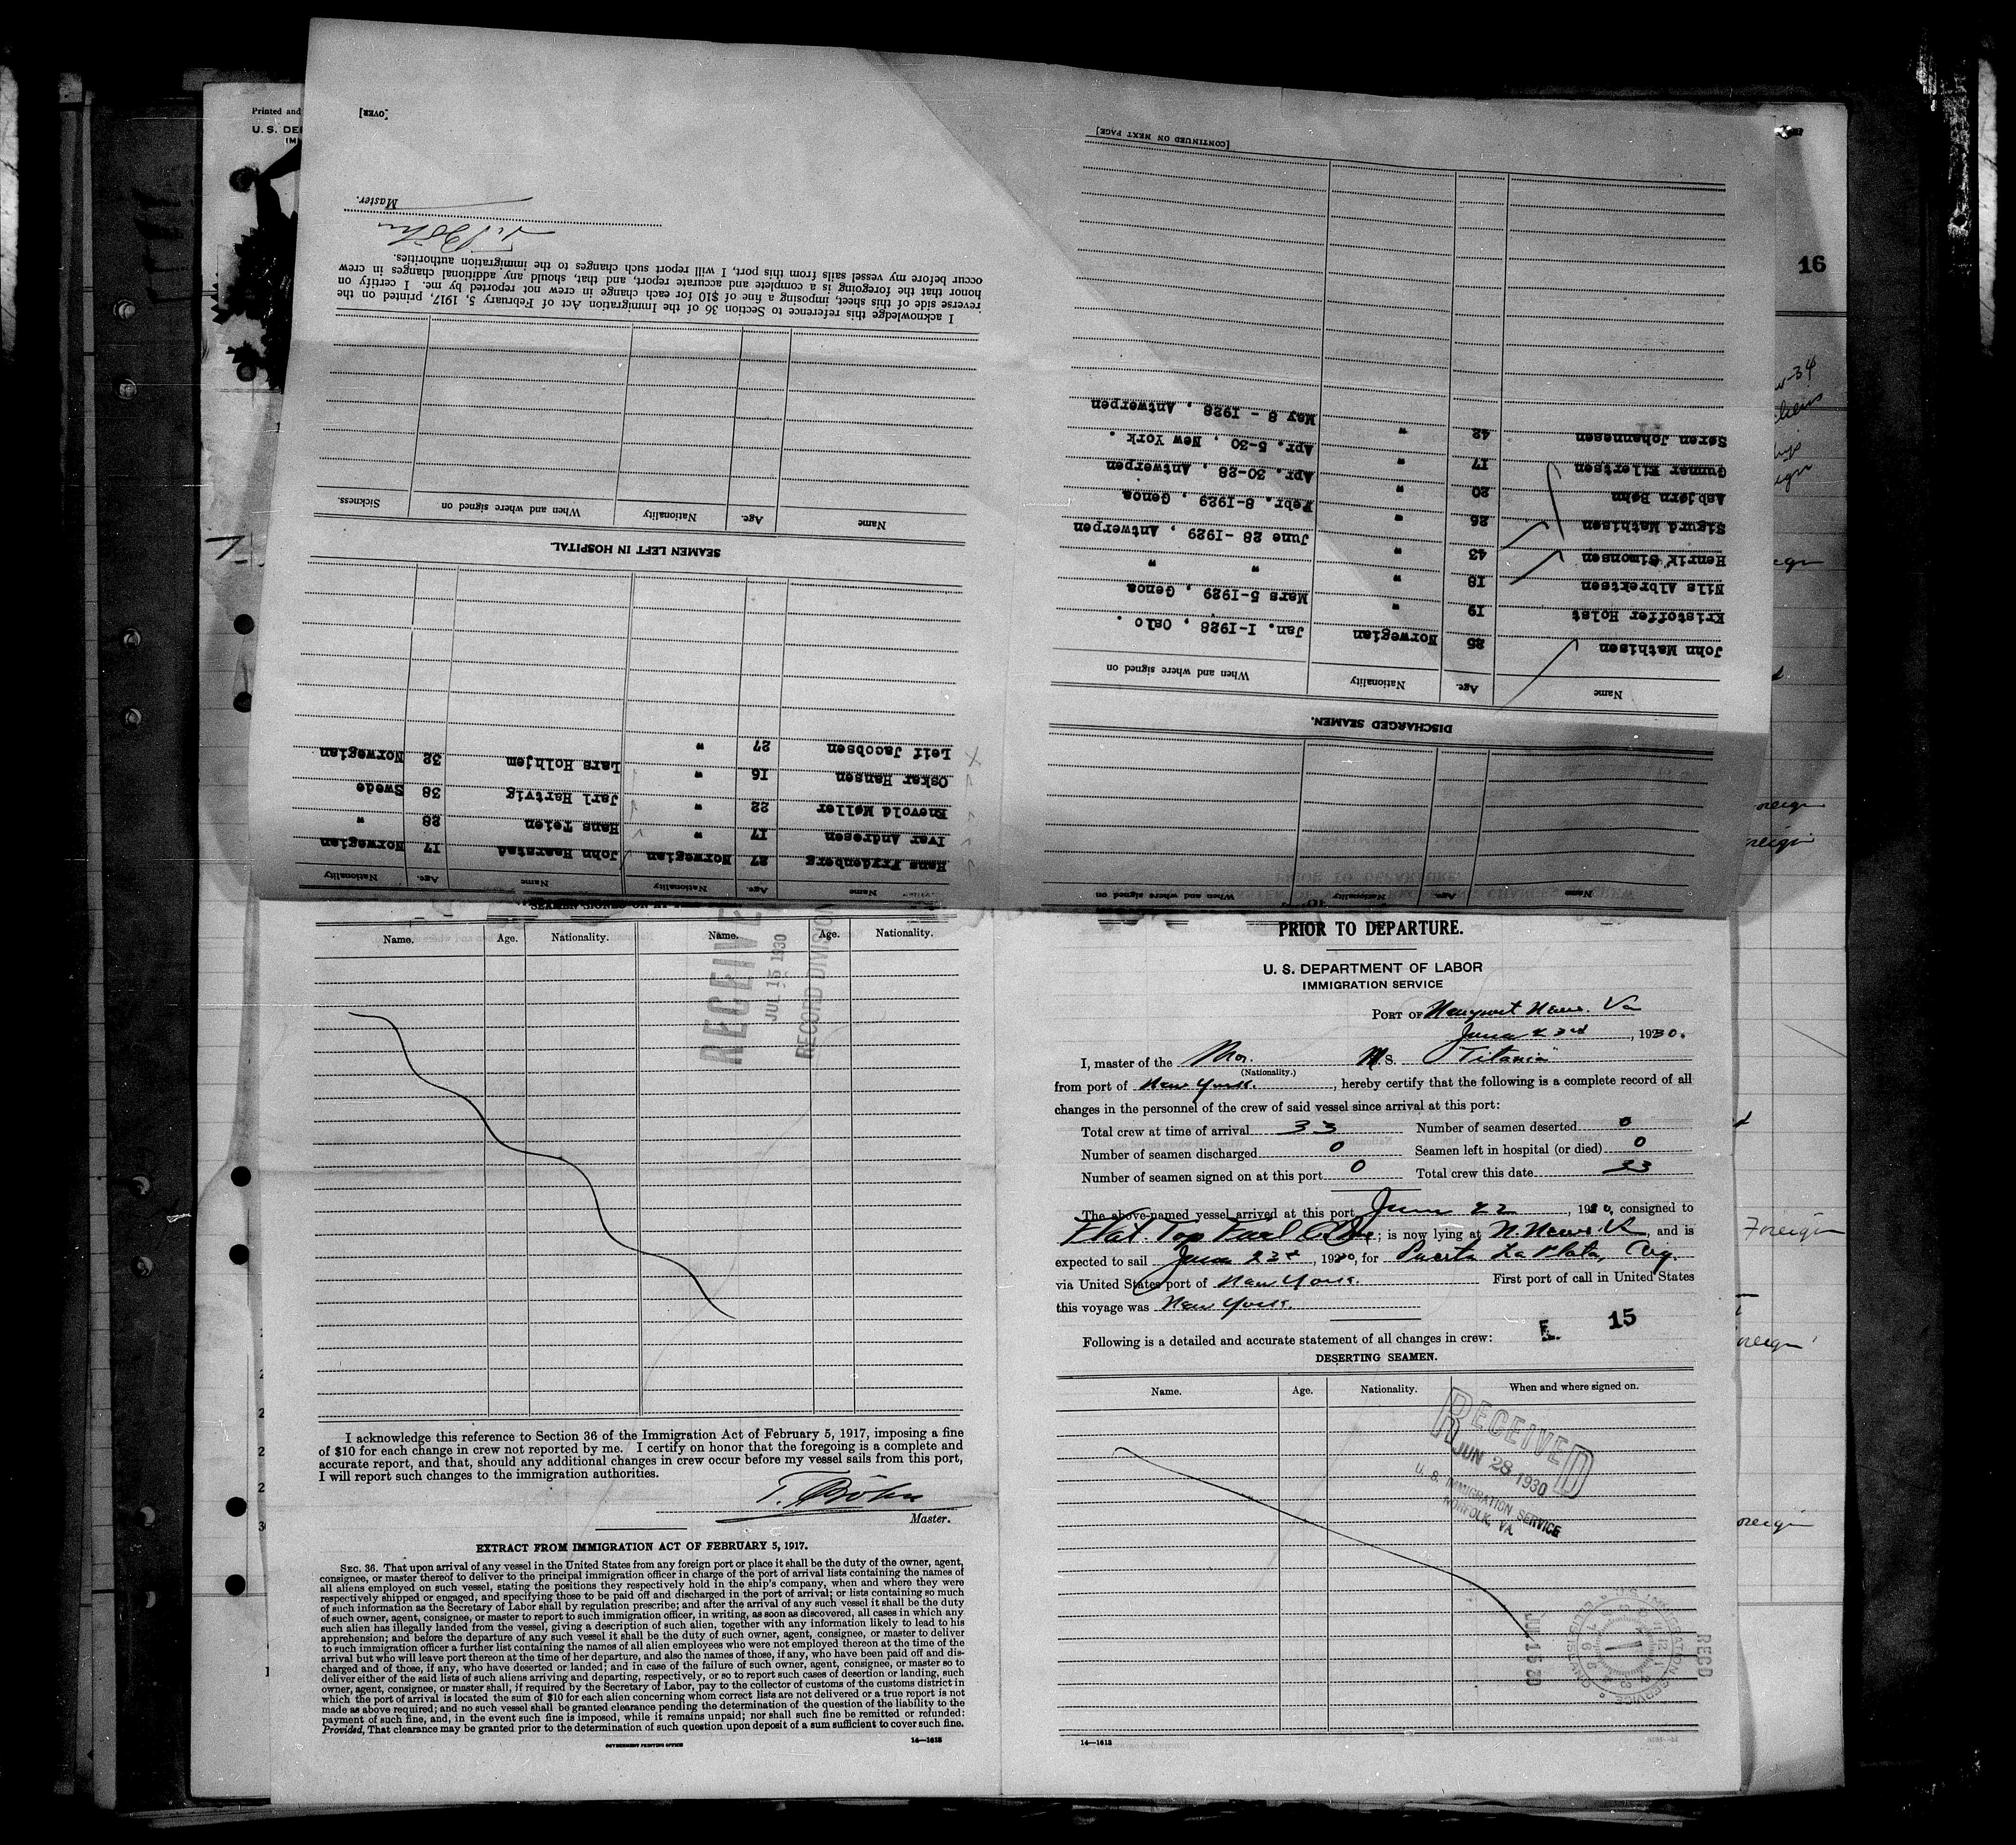 Printed and
U. S. DE
16
Name
Age.
Nationality
When and where signed on
DISCHARGED SEAMEN.
Name Age. Nationality When and where signed on
John Mathisen 25 Norwegian Jan. 1-1928, Oslo.
Kristoffer Holst 19 " Mars 5-1929, Genoa
Nils Albrektsen 18 " " "
Henrik Simonsen 43 " June 28 -1929, Antwerpen
Sigurd Mathisen 26 " Febr. 8-1929, Genoa
Asbjørn Bøhn 20 " Apr. 30-28, Antwerpen
Gunnar Eilertsen 17 " Apr. 5-30, New York.
Søren Johannesen 42 " May 8 - 1928, Antwerpen
[CONTINUED ON NEXT PAGE]
Name Age. Nationality Name Age. Nationality
Hans Frydenberg 27 Norwegian John Haarstad 17 Norwegian
Iver Andresen 17 " Hans Teien 28 "
Enevold Møller 22 " Jarl Hartvig 38 Swede
Oskar Hansen 16 " Lars Holhjem 32 Norwegian
Leif Jacobsen 27 "
SEAMEN LEFT IN HOSPITAL.
Name Age. Nationality When and where signed on Sickness.
I acknowledge this reference to Section 36 of the Immigration Act of February 5, 1917, printed on the
reverse side of this sheet, imposing a fine of $10 for each change in crew not reported by me. I certify on
honor that the foregoing is a complete and accurate report, and that, should any additional changes in crew
occur before my vessel sails from this port, I will report such changes to the immigration authorities.
T. Bøhn
Master.
[OVER]
Name. Age. Nationality. Name. Age. Nationality.
RECEIVE
JUL 15 1930
RECORD DIVISION
I acknowledge this reference to Section 36 of the Immigration Act of February 5, 1917, imposing a fine
of $10 for each change in crew not reported by me. I certify on honor that the foregoing is a complete and
accurate report, and that, should any additional changes in crew occur before my vessel sails from this port,
I will report such changes to the immigration authorities.
T. Bøhn
Master.
EXTRACT FROM IMMIGRATION ACT OF FEBRUARY 5, 1917.
SEC. 36. That upon arrival of any vessel in the United States from any foreign port or place it shall be the duty of the owner, agent,
consignee, or master thereof to deliver to the principal immigration officer in charge of the port of arrival lists containing the names of
all aliens employed on such vessel, stating the positions they respectively hold in the ship's company, when and where they were
respectively shipped or engaged, and specifying those to be paid off and discharged in the port of arrival; or lists containing so much
of such information as the Secretary of Labor shall by regulation prescribe; and after the arrival of any such vessel it shall be the duty
of such owner, agent, consignee, or master to report to such immigration officer, in writing, as soon as discovered, all cases in which any
such alien has illegally landed from the vessel, giving a description of such alien, together with any information likely to lead to his
apprehension; and before the departure of any such vessel it shall be the duty of such owner, agent, consignee, or master to deliver
to such immigration officer a further list containing the names of all alien employees who were not employed thereon at the time of the
arrival but who will leave port thereon at the time of her departure, and also the names of those, if any, who have been paid off and dis-
charged and of those, if any, who have deserted or landed; and in case of the failure of such owner, agent, consignee, or master so to
deliver either of the said lists of such aliens arriving and departing, respectively, or so to report such cases of desertion or landing, such
owner, agent, consignee, or master shall, if required by the Secretary of Labor, pay to the collector of customs of the customs district in
which the port of arrival is located the sum of $10 for each alien concerning whom correct lists are not delivered or a true report is not
made as above required; and no such vessel shall be granted clearance pending the determination of the question of the liability to the
payment of such fine, and, in the event such fine is imposed, while it remains unpaid; nor shall such fine be remitted or refunded:
Provided, That clearance may be granted prior to the determination of such question upon deposit of a sum sufficient to cover such fine.
GOVERNMENT PRINTING OFFICE
14—1613
PRIOR TO DEPARTURE.
U. S. DEPARTMENT OF LABOR
IMMIGRATION SERVICE
PORT OF Newport News. Va
June 23rd, 1930.
I, master of the Nor. M S. "Titania"
(Nationality.)
from port of New York., hereby certify that the following is a complete record of all
changes in the personnel of the crew of said vessel since arrival at this port:
Total crew at time of arrival 33 Number of seamen deserted 0
Number of seamen discharged 0 Seamen left in hospital (or died) 0
Number of seamen signed on at this port 0 Total crew this date 33
The above-named vessel arrived at this port June 22, 1930, consigned to
Flat. Top Fuel; is now lying at N. News. Va, and is
expected to sail June 23d, 1930, for Puerto La Plata, Arg.
via United States port of New York. First port of call in United States
this voyage was New York.
Following is a detailed and accurate statement of all changes in crew:
E. 15
DESERTING SEAMEN.
Name. Age. Nationality. When and where signed on.
RECEIVED
JUN 28 1930
U. S. IMMIGRATION SERVICE
NORFOLK, VA.
JUL 15 30
REC'D
14—1613
Foreign